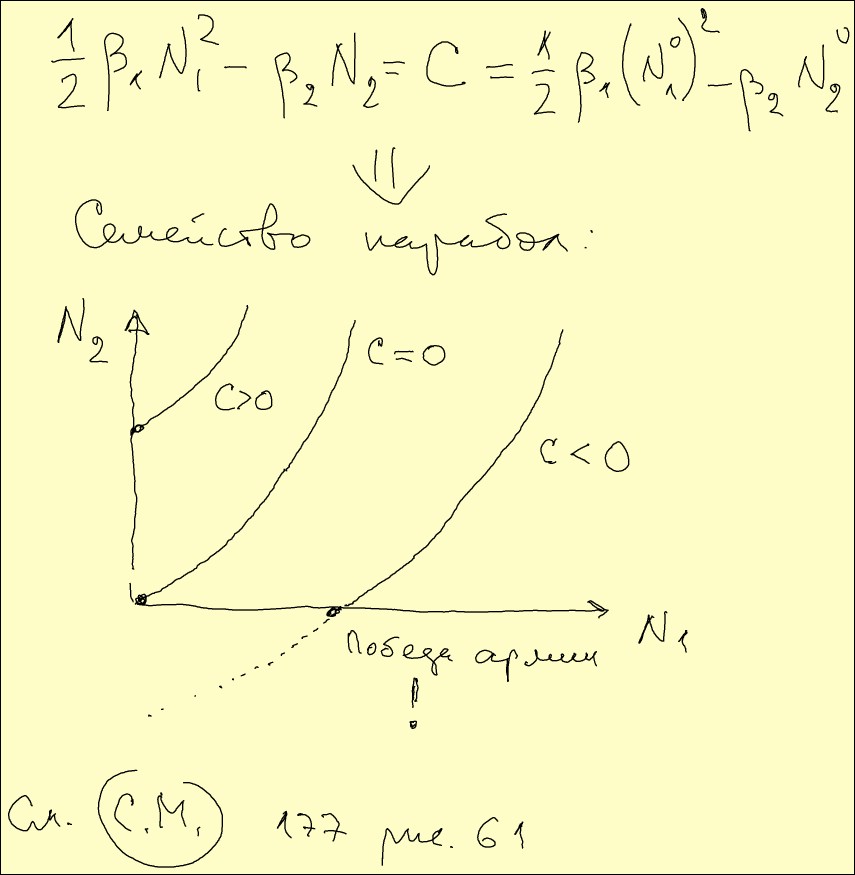 1/2 β₁ N₁² - β₂ N₂ = C = 1/2 β₁ (N₁⁰)² - β₂ N₂⁰
⇓
Семейство парабол:
N₂
C=0
C>0
C<0
N₁
Победа армии
!
См. С.М. 177 рис. 61